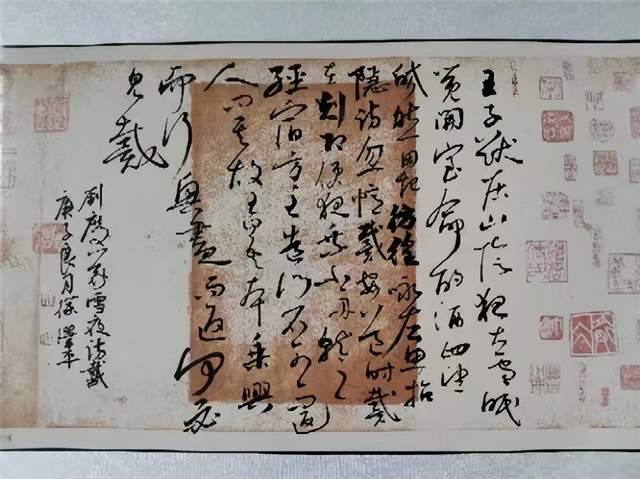 王子猷居山陰夜大雪眠
覺開室命酌酒四望
皎然因起彷徨詠左思招
隐詩忽憶戴安道時戴
在剡即便夜乘小舟就之
經宿方至造門不前而返
人問其故王曰吾本乘興
而行興盡而返何必
見戴
劉慶義雪夜訪戴
庚子良月徐